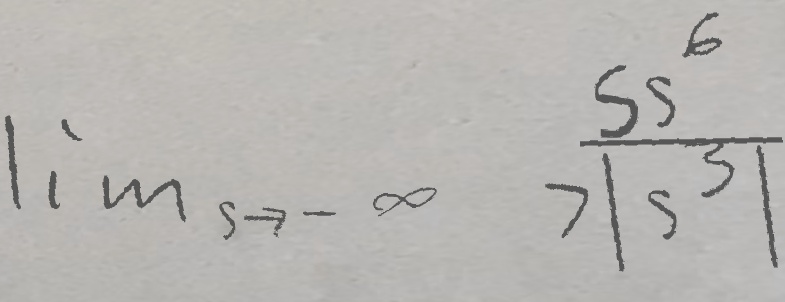 lim s→-∞ 5s^6 / 7|s^5|